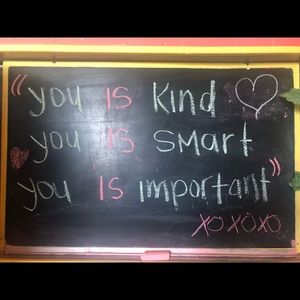 "you is kind
you is smart
you is important"
XOXOXO